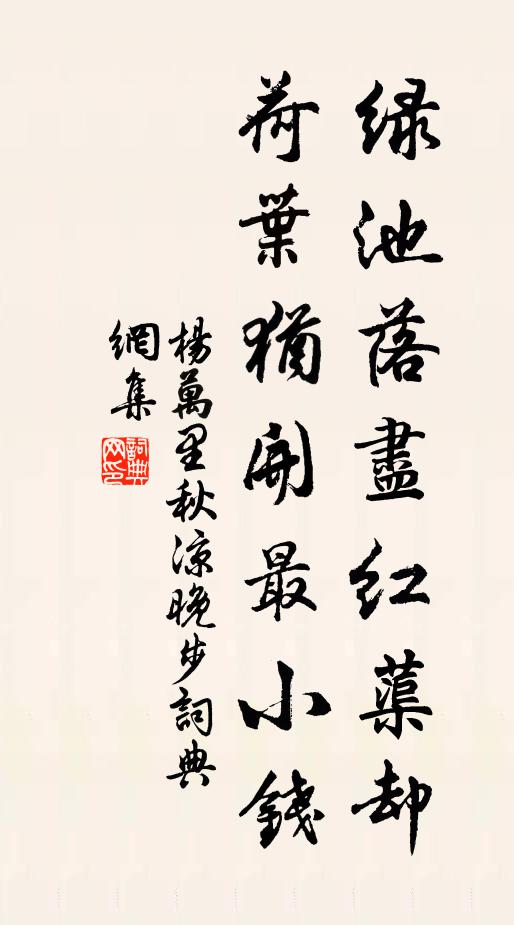 綠池落盡紅蕖却
荷葉猶開最小錢
楊萬里秋涼晚步詞典
網集
詞典
网印